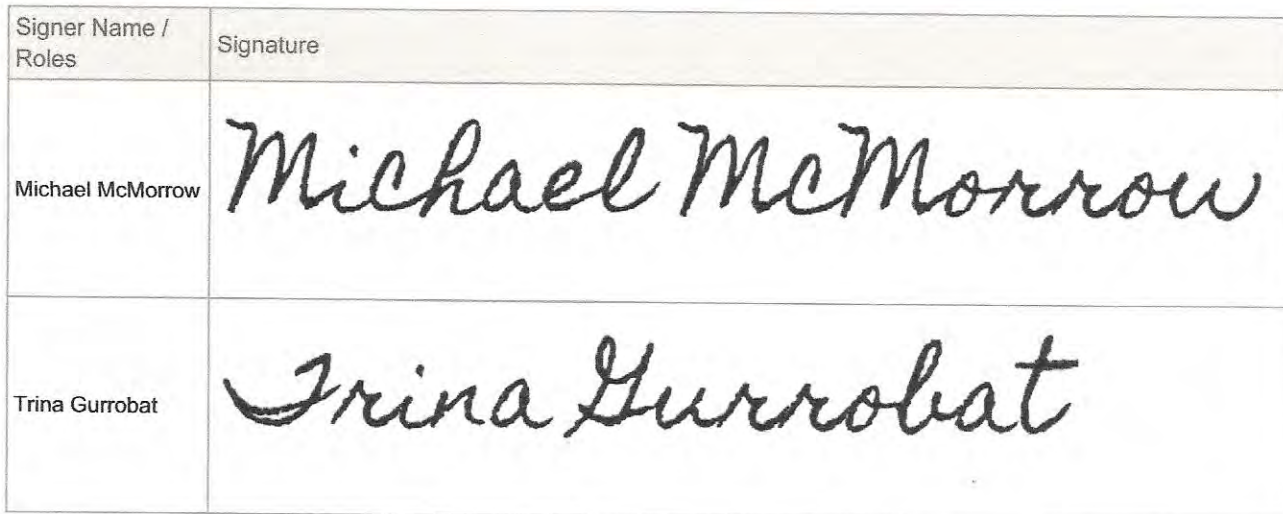 Signer Name /
Roles
Signature
Michael McMorrow
Michael McMorrow
Trina Gurrobat
Trina Gurrobat